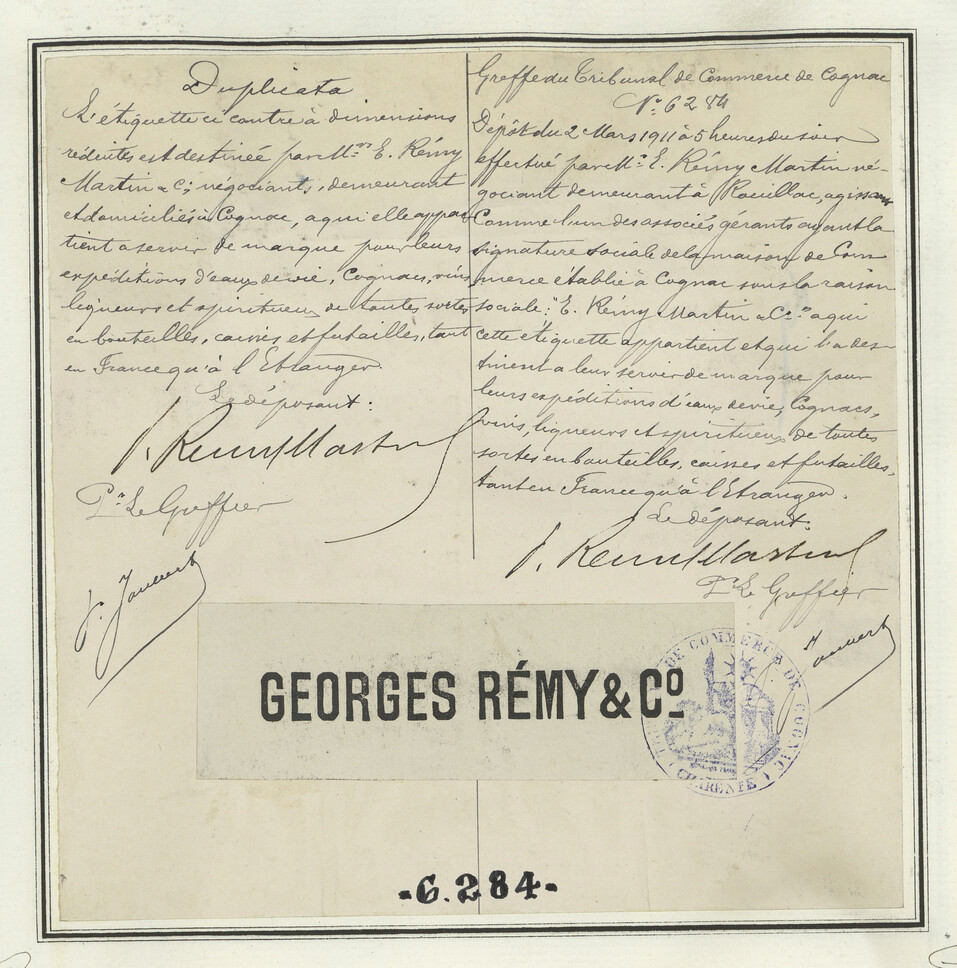 Duplicata
L'étiquette ci contre à dimensions
réduites est destinée par M.rs E. Rémy
Martin & Cie, négociants, demeurant
et domiciliés à Cognac, à qui elle appar
tient à servir de marque pour leurs
expéditions d'eaux de vie, Cognacs, vins
liqueurs et spiritueux de toutes sortes
en bouteilles, caisses et futailles, tant
en France qu'à l'Etranger.
Le déposant:
Remy Martin
Pr Le Greffier
Greffe du Tribunal de Commerce de Cognac
No. 6284
Dépôt du 2 Mars 1911 à 5 heures du soir
effectué par Mr. E. Rémy Martin né-
gociant demeurant à Rouillac, agissant
comme l'un des associés gérants ayant la
signature sociale de la maison de Com
merce établie à Cognac sous la raison
sociale: "E. Rémy Martin & Cie" à qui
cette étiquette appartient et qui l'a des-
tinent à leur servir de marque pour
leurs expéditions d'eaux de vie, Cognacs,
vins, liqueurs et spiritueux de toutes
sortes en bouteilles, caisses et futailles,
tant en France qu'à l'Etranger.
Le déposant:
Remy Martin
Pr Le Greffier
GEORGES RÉMY & Co
DE COMMERCE DE COGNAC
CHARENTE
-6.284-